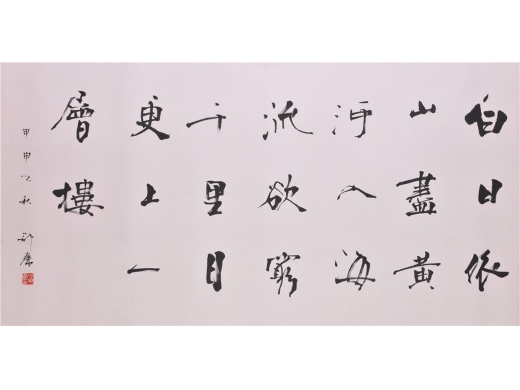 白日依
山盡黄
河入海
流欲窮
千里目
更上一
層樓
甲申之秋